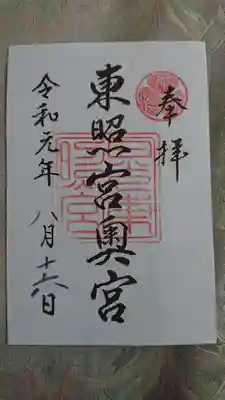 奉拝
東照宮奥宮
令和元年八月十六日